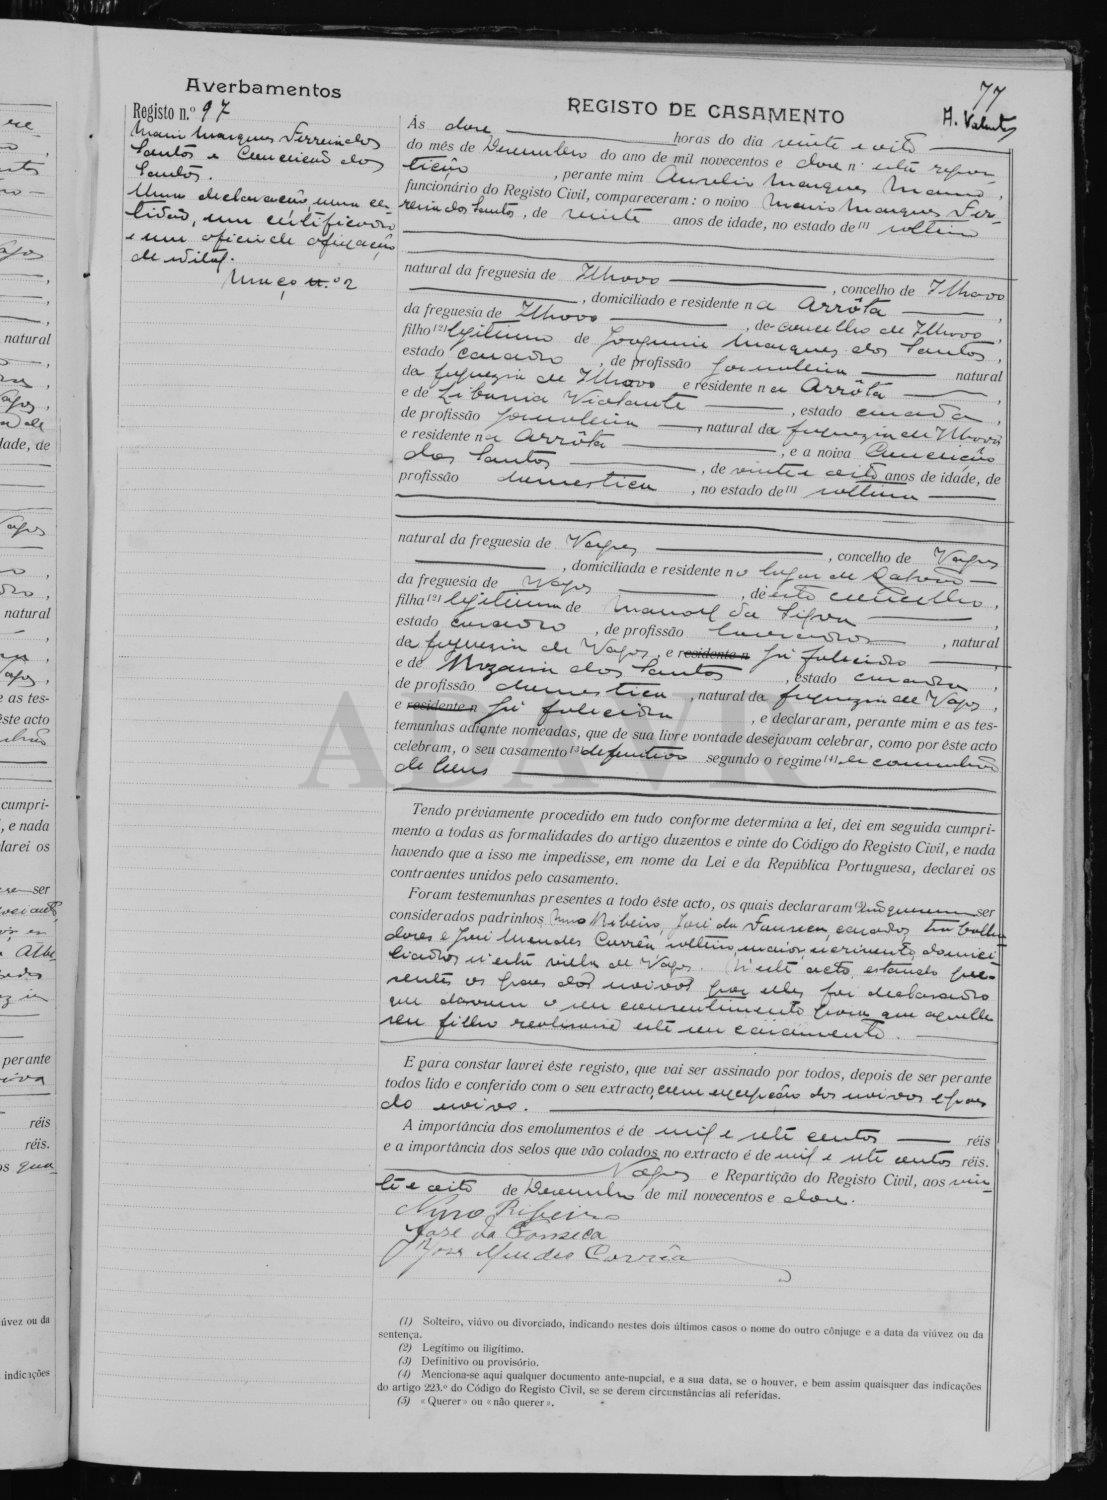 77
Averbamentos
REGISTO DE CASAMENTO
Registo n.º 97
Mario Marques Ferreira dos
Santos e Conceição dos
Santos.
Uma declaração, uma cer-
tidão, um certificado
e um oficio de afixação
de edital.
Maço n.º 2
Às doze horas do dia vinte e oito
do mês de Dezembro do ano de mil novecentos e doze n'esta repar-
tição, perante mim Aurelio Marques Mano,
funcionário do Registo Civil, compareceram: o noivo Mario Marques Fer-
reira dos Santos, de vinte anos de idade, no estado de (1) solteiro
natural da freguesia de Ilhavo, concelho de Ilhavo
, domiciliado e residente na Arrôta
da freguesia de Ilhavo, de concelho de Ilhavo,
filho (2) legitimo de Joaquim Marques dos Santos,
estado casado, de profissão jornaleiro natural
da freguezia de Ilhavo e residente na Arrôta,
e de Libania Violante, estado casada,
de profissão jornaleira, natural da freguezia de Ilhavo
e residente na Arrôta, e a noiva Conceição
dos Santos, de vinte e oito anos de idade, de
profissão domestica, no estado de (1) solteira
natural da freguesia de Vagos, concelho de Vagos
, domiciliada e residente no lugar de
da freguesia de Vagos, de este concelho,
filha (2) legitima de Manoel da Silva,
estado casado, de profissão lavrador, natural
da freguezia de Vagos, e residente n já falecido
e de Rozaria dos Santos, estado casada,
de profissão domestica, natural da freguezia de Vagos,
e residente n já falecida, e declararam, perante mim e as tes-
temunhas adiante nomeadas, que de sua livre vontade desejavam celebrar, como por êste acto
celebram, o seu casamento (3) definitivo segundo o regime (4) de comunhão
de bens
Tendo préviamente procedido em tudo conforme determina a lei, dei em seguida cumpri-
mento a todas as formalidades do artigo duzentos e vinte do Código do Registo Civil, e nada
havendo que a isso me impedisse, em nome da Lei e da República Portuguesa, declarei os
contraentes unidos pelo casamento.
Foram testemunhas presentes a todo êste acto, os quais declararam (5) não querem ser
considerados padrinhos, Nuno Ribeiro, José da Fonseca, casados, trabalha-
dores e José Mendes Corrêa solteiro, maior, escrivente, domici-
liados n'esta villa de Vagos. N'este acto, estando pre-
sentes os paes dos noivos por elles foi declarado
que davam o seu consentimento para que aquelle
seu filho realisasse este seu casamento.
E para constar lavrei êste registo, que vai ser assinado por todos, depois de ser perante
todos lido e conferido com o seu extracto, com excepção dos noivos e paes
do noivo.
A importância dos emolumentos é de mil e sete centos réis
e a importância dos selos que vão colados no extracto é de mil e sete centos réis.
Vagos e Repartição do Registo Civil, aos vin-
te e oito de Dezembro de mil novecentos e doze.
Nuno Ribeiro
José da Fonseca
José Mendes Corrêa
(1) Solteiro, viúvo ou divorciado, indicando nestes dois últimos casos o nome do outro cônjuge e a data da viúvez ou da
sentença.
(2) Legítimo ou iligítimo.
(3) Definitivo ou provisório.
(4) Menciona-se aqui qualquer documento ante-nupcial, e a sua data, se o houver, e bem assim quaisquer das indicações
do artigo 223.º do Código do Registo Civil, se se derem circunstâncias ali referidas.
(5) «Querer» ou «não querer».
ADAVR